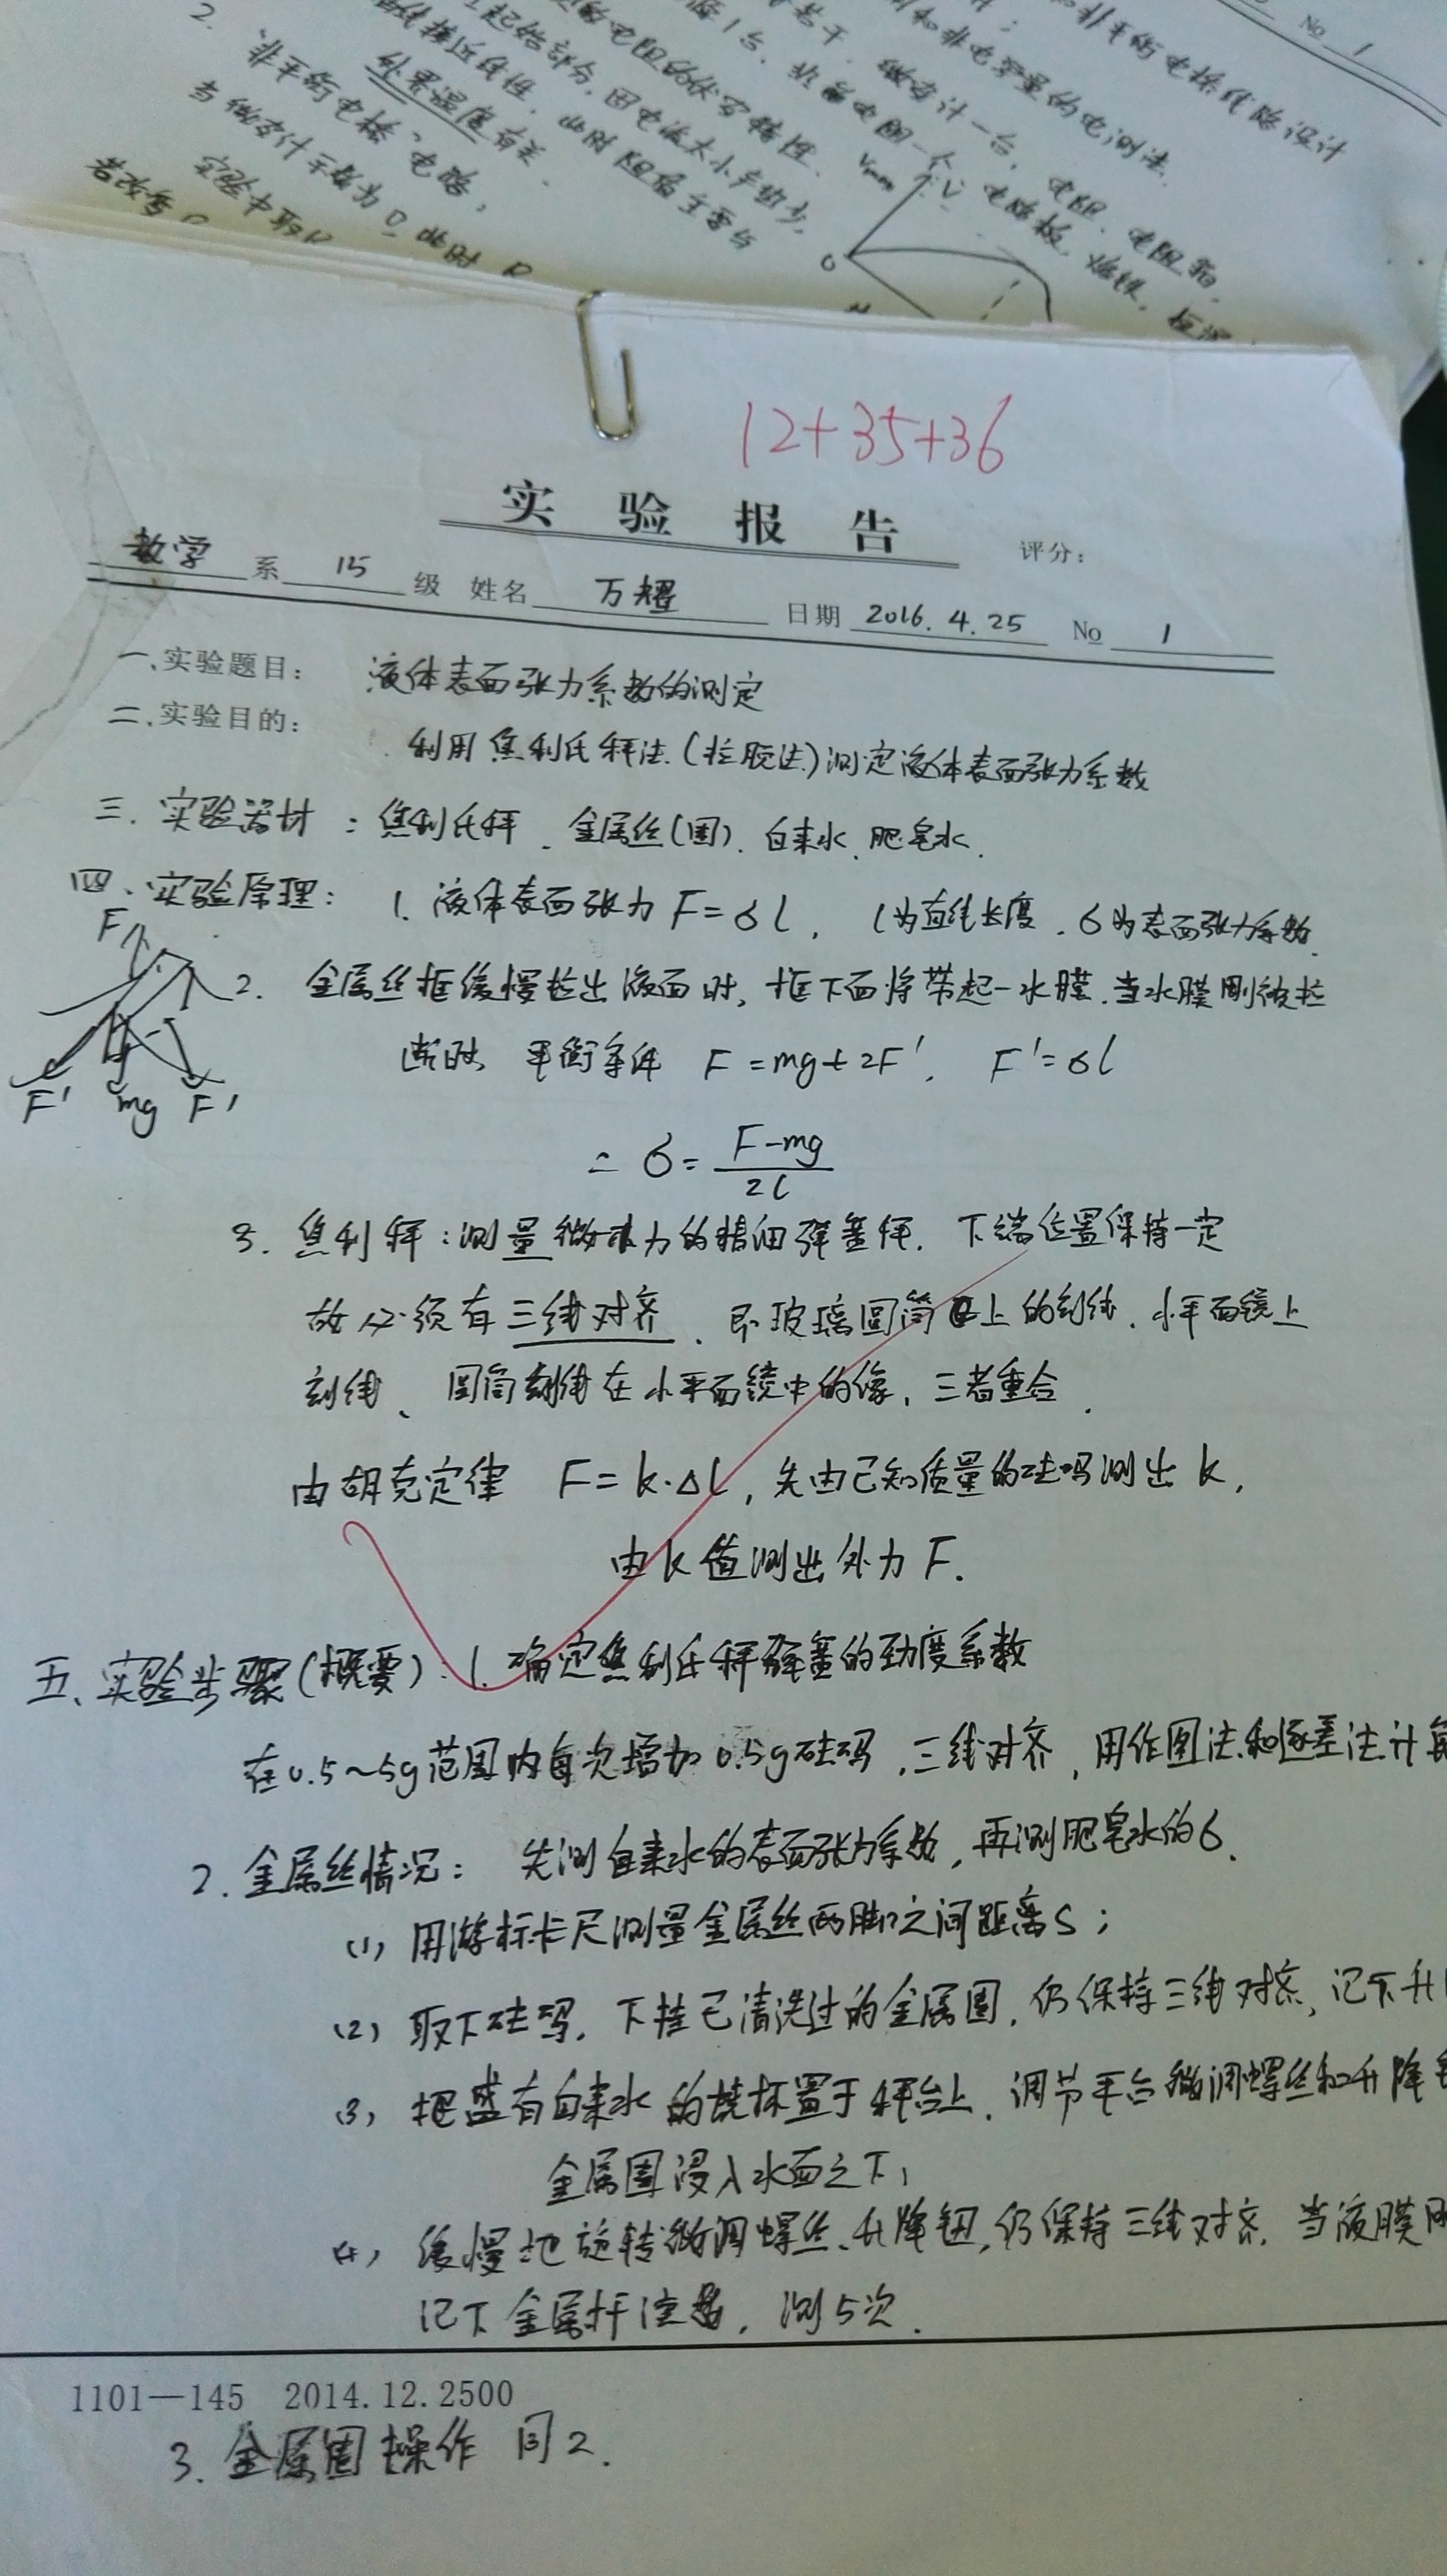 No 1
和非平衡电桥线路设计
和非电学量的电测法.
处零温度有关.
2. 非平衡电桥电路;
12+35+36
实验报告
评分:
数学 系 15 级 姓名 万耀 日期 2016.4.25 No 1
一、实验题目: 液体表面张力系数的测定
二、实验目的:
利用焦利氏秤法(拉脱法)测定液体表面张力系数
三. 实验器材: 焦利氏秤、金属丝(圈)、自来水、肥皂水.
四、实验原理: 1. 液体表面张力 F=σl, l为直线长度, σ为表面张力系数.
F
2. 金属丝框缓慢拉出液面时, 框下面将带起一水膜. 当水膜刚被拉
断时, 平衡条件 F=mg+2F', F'=σl
F' mg F'
∴ σ= F-mg / 2l
3. 焦利秤: 测量微小力的精细弹簧秤. 下端位置保持一定
故必须有三线对齐, 即玻璃圆筒上的刻线、小平面镜上
刻线、圆筒刻线在小平面镜中的像, 三者重合.
由胡克定律 F=k·Δl, 先由已知质量的砝码测出k,
由k值测出外力F.
五、实验步骤(概要): 1. 确定焦利氏秤弹簧的劲度系数
在0.5~5g范围内每次增加0.5g砝码, 三线对齐, 用作图法和逐差法计算
2. 金属丝情况: 先测自来水的表面张力系数, 再测肥皂水的σ.
(1) 用游标卡尺测量金属丝两脚之间距离s;
(2) 取下砝码, 下挂已清洗过的金属圈, 仍保持三线对齐, 记下升
(3) 把盛有自来水的烧杯置于秤台上, 调节平台微调螺丝和升降
金属圈浸入水面之下;
(4) 缓慢地旋转微调螺丝、升降钮, 仍保持三线对齐. 当液膜刚
记下金属杆读数, 测5次.
1101—145 2014.12.2500
3. 金属圈操作同2.